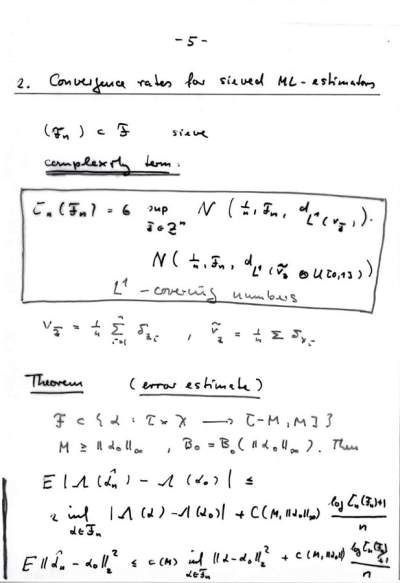 - 5 -
2. Convergence rates for sieved ML-estimators
(F_n) ⊂ F sieve
complexity term:
τ_n(F_n) = 6 sup_{z̄∈Z^n} N(1/n, F_n, d_{L^1(ν_z̄)}) ·
N(1/n, F_n, d_{L^1(ν̃_z̄ ⊗ U[0,1])})
L^1 - covering numbers
ν_z̄ = 1/n ∑_{i=1}^n δ_{z_i} , ν̃_z̄ = 1/n ∑ δ_{x_i}
Theorem (error estimate)
F ⊂ {α : τ × X → [-M, M]}
M ≥ ||α_0||_∞ , B_0 = B_0(||α_0||_∞). Then
E|Λ(α̂_n) - Λ(α_0)| ≤
2 inf_{α∈F_n} |Λ(α) - Λ(α_0)| + C(M, ||α_0||_∞) log τ_n(F_n)+1 / n
E||α̂_n - α_0||_2^2 ≤ c(M) inf_{α∈F_n} ||α - α_0||_2^2 + C(M, ||α_0||) log τ_n(F_n)+1 / n